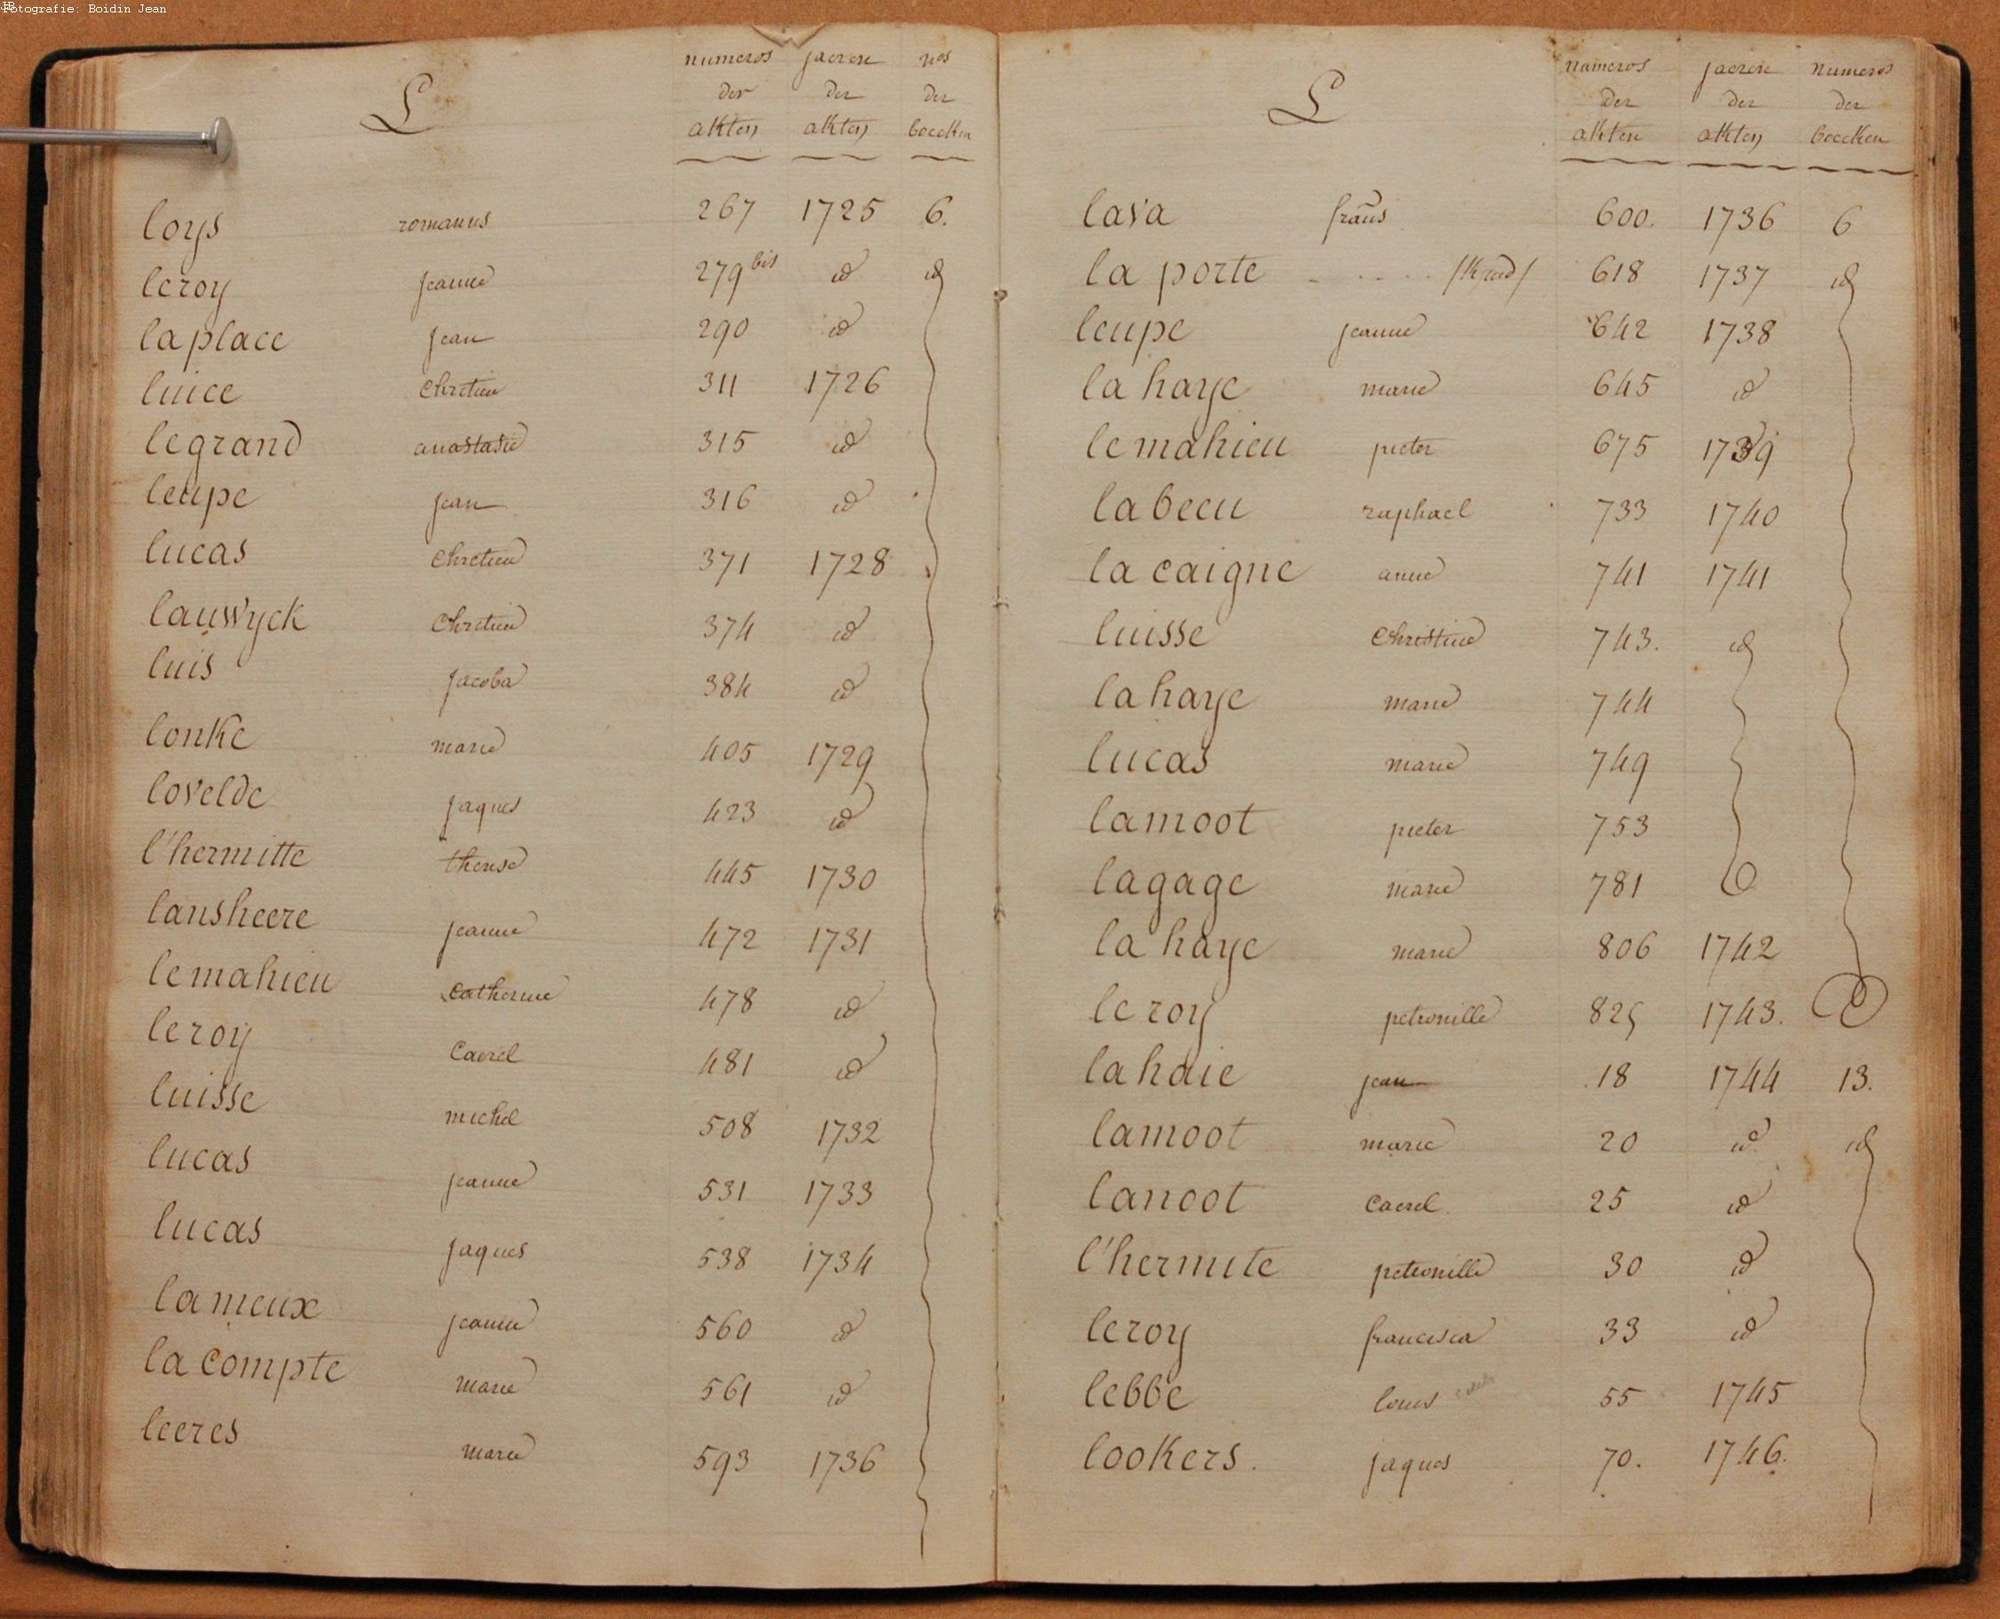 Fotografie: Boidin Jean
L numeros jaeren nos
der der der
akten akten boecken
loys romanus 267 1725 6.
leroy jeanne 279 bis id id
laplace jean 290 id
luice chretien 311 1726
legrand anastasie 315 id
leupe jean 316 id
lucas chretien 371 1728
lauwyck chretien 374 id
luis jacoba 384 id
lonke marie 405 1729
lovelde jaques 423 id
l'hermitte therese 445 1730
lansheere jeanne 472 1731
lemahieu catherine 478 id
leroy caerel 481 id
luisse michel 508 1732
lucas jeanne 531 1733
lucas jaques 538 1734
lameux jeanne 560 id
la compte marie 561 id
leeres marie 593 1736
L numeros jaeren numeros
der der der
akten akten boecken
lava frans 600. 1736 6
la porte 618 1737 id
leupe jeanne 642 1738
la haye marie 645 id
lemahieu pieter 675 1739
labeeu raphael 733 1740
la caigne anne 741 1741
luisse christine 743. id
la haye marie 744
lucas marie 749
lamoot pieter 753
lagage marie 781
la haye marie 806 1742
leroy petronille 825 1743.
la haie jean 18 1744 13.
lamoot marie 20 id id
lanoot caerel. 25 id
l'hermite petronille 30 id
leroy francisca 33 id
lebbe louis 55 1745
lookers. jaques 70. 1746.